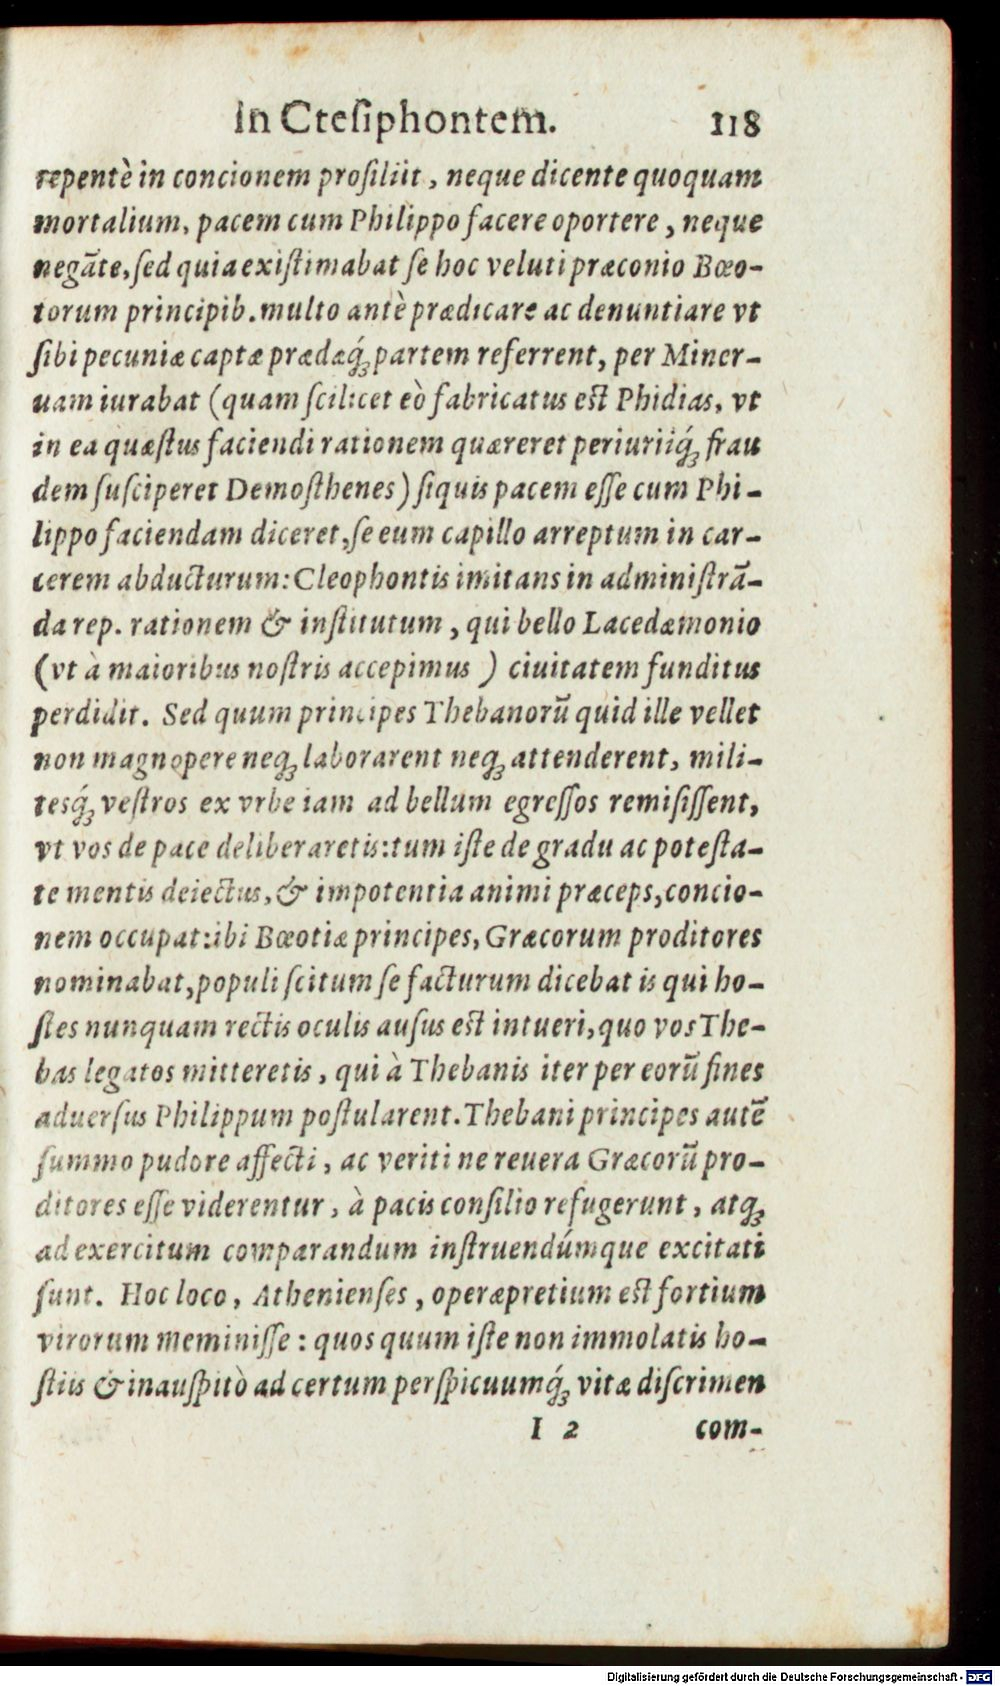 In Cteſiphontem. 118
repentè in concionem proſiliit, neque dicente quoquam
mortalium, pacem cum Philippo facere oportere, neque
negãte, ſed quia exiſtimabat ſe hoc veluti præconio Bœo-
torum principib. multo antè prædicare ac denuntiare vt
ſibi pecuniæ captæ prædæq́ꝫ partem referrent, per Miner-
uam iurabat (quam ſcilicet eò fabricatus eſt Phidias, vt
in ea quæſtus faciendi rationem quæreret periuriiq́ꝫ frau
dem ſuſciperet Demoſthenes) ſiquis pacem eſſe cum Phi-
lippo faciendam diceret, ſe eum capillo arreptum in car-
cerem abducturum: Cleophontis imitans in adminiſtrã-
da rep. rationem & inſtitutum, qui bello Lacedæmonio
(vt à maioribus noſtris accepimus) ciuitatem funditus
perdidit. Sed quum principes Thebanorũ quid ille vellet
non magnopere neqꝫ laborarent neqꝫ attenderent, mili-
tesq́ꝫ veſtros ex vrbe iam ad bellum egreſſos remiſiſſent,
vt vos de pace deliberaretis: tum iſte de gradu ac poteſta-
te mentis deiectus, & impotentia animi præceps, concio-
nem occupat: ibi Bœotiæ principes, Græcorum proditores
nominabat, populi ſcitum ſe facturum dicebat is qui ho-
ſtes nunquam rectis oculis auſus eſt intueri, quo vos The-
bas legatos mitteretis, qui à Thebanis iter per eorũ fines
aduerſus Philippum poſtularent. Thebani principes autẽ
ſummo pudore affecti, ac veriti ne reuera Græcorũ pro-
ditores eſſe viderentur, à pacis conſilio refugerunt, atqꝫ
ad exercitum comparandum inſtruendúmque excitati
ſunt. Hoc loco, Athenienſes, operæpretium eſt fortium
virorum meminiſſe: quos quum iſte non immolatis ho-
ſtiis & inauſpitò ad certum perſpicuumq́ꝫ vitæ diſcrimen
I 2 com-
Digitalisierung gefördert durch die Deutsche Forschungsgemeinschaft - DFG